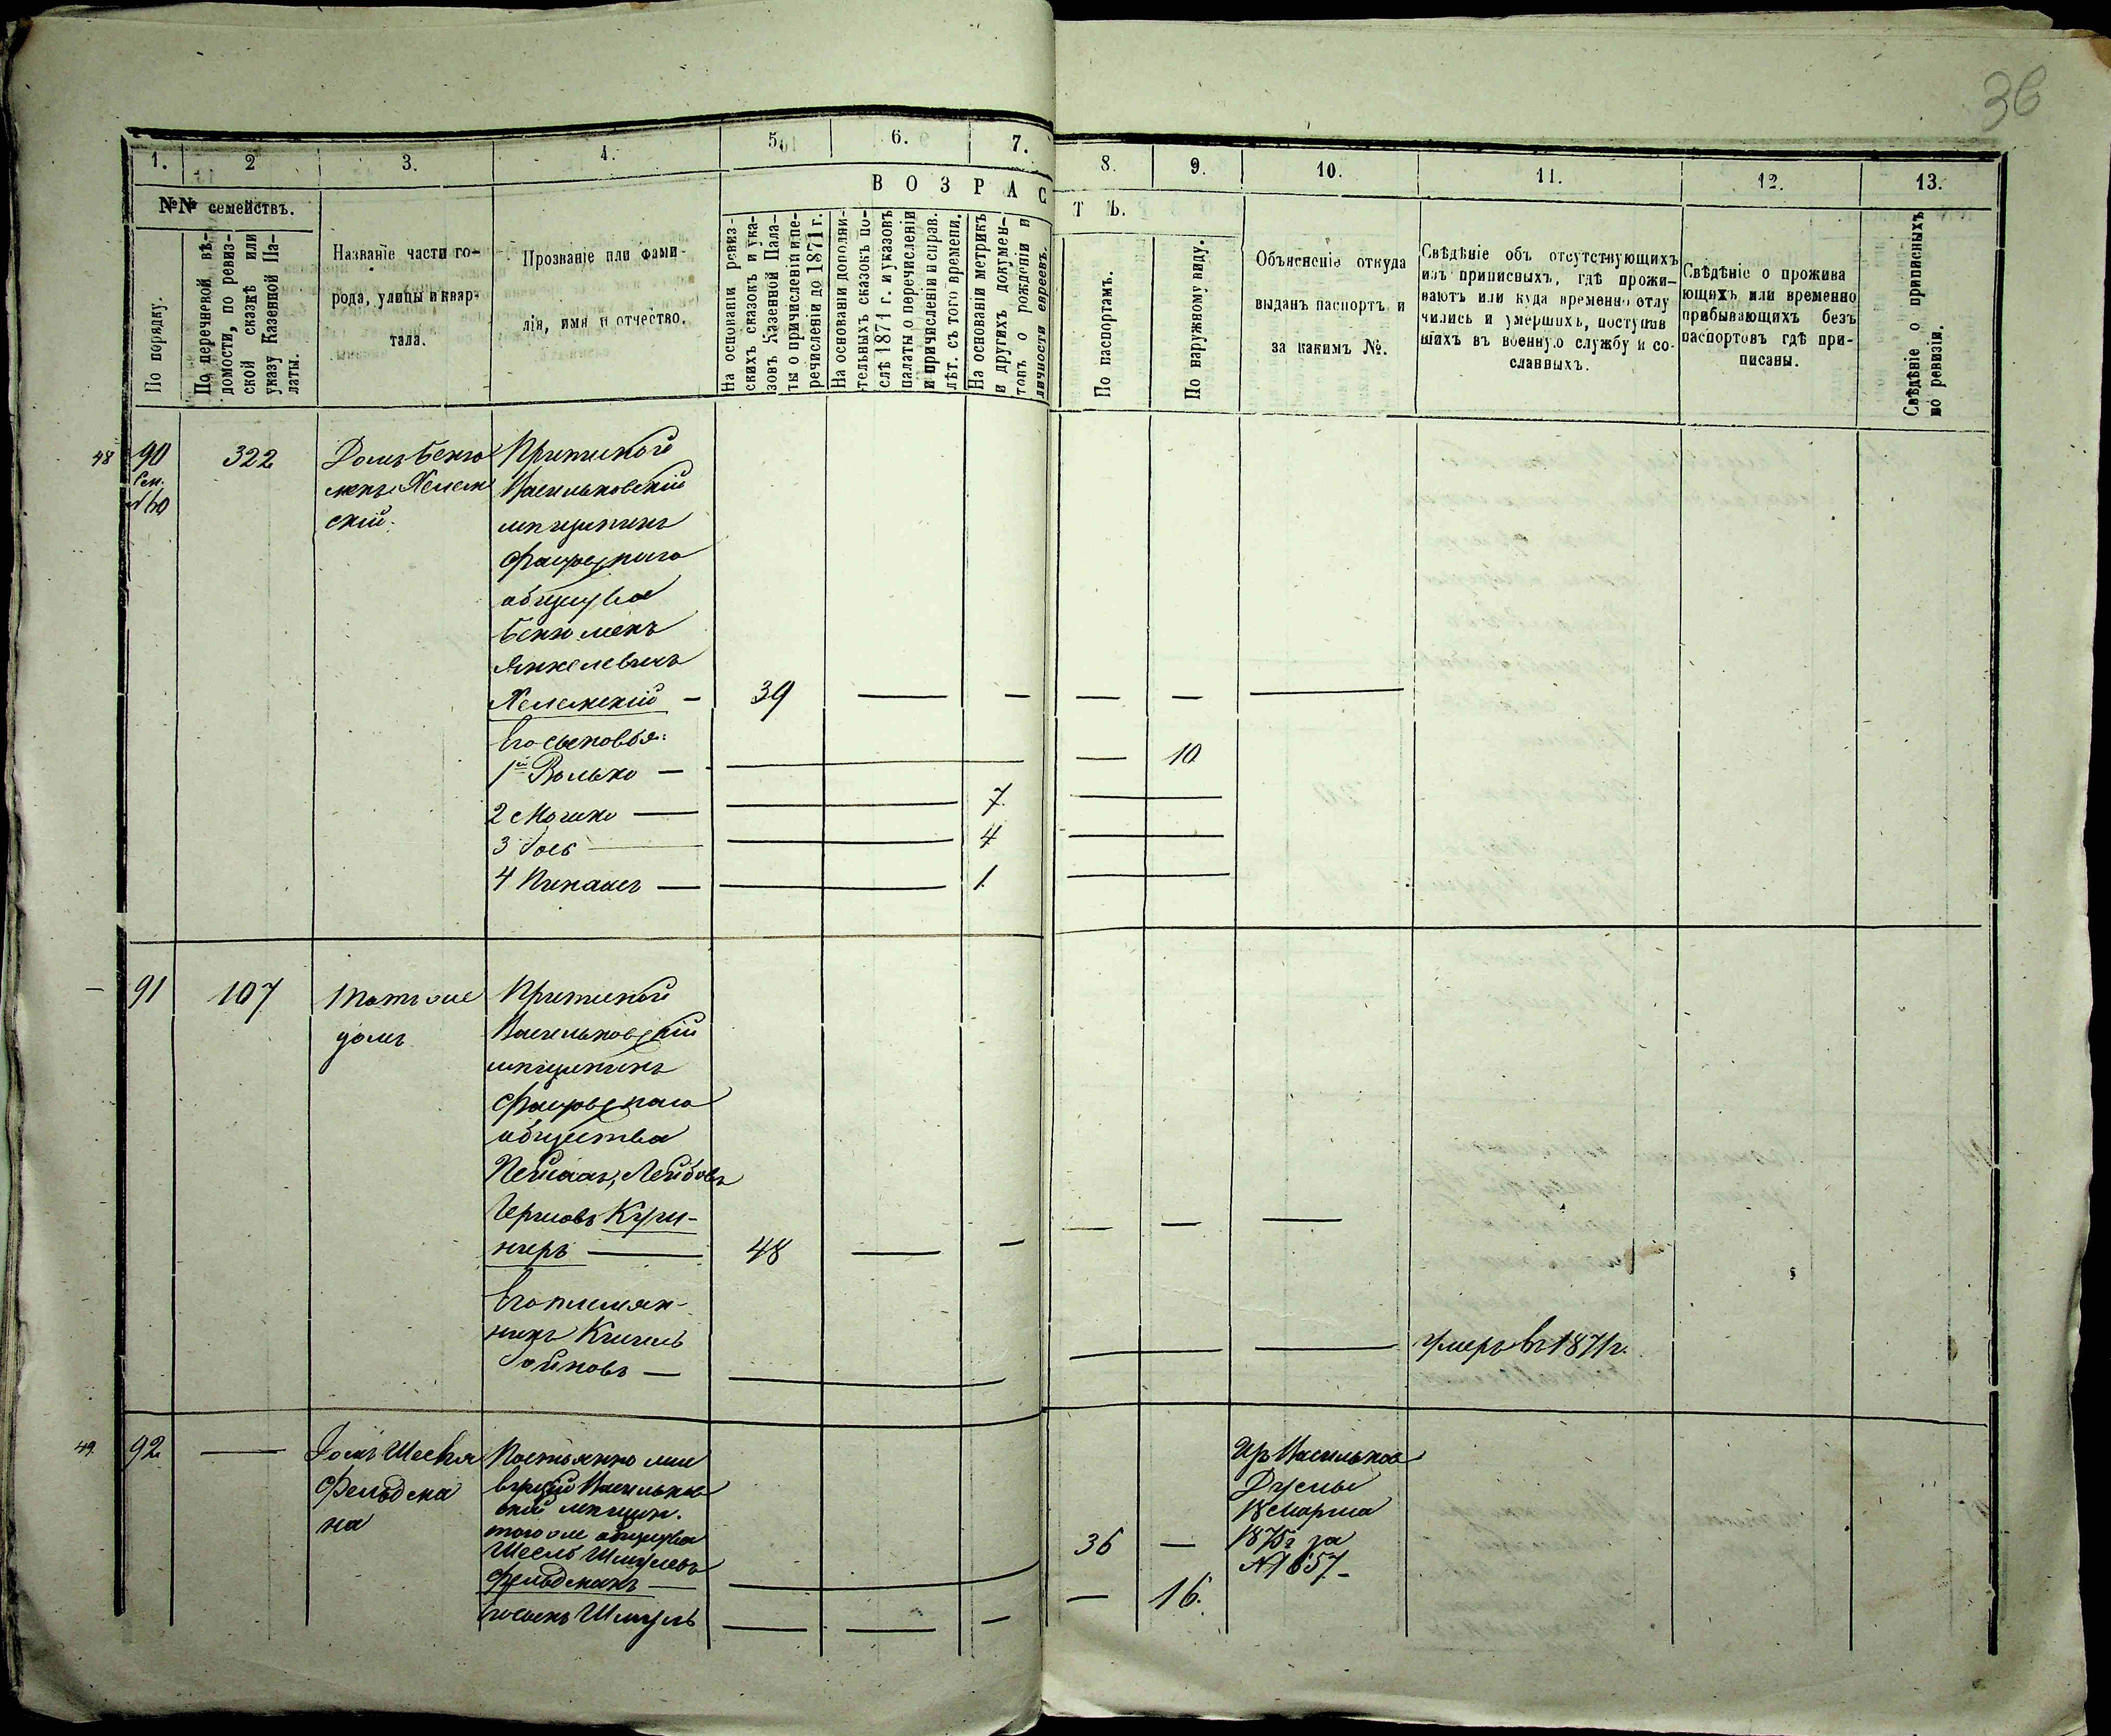 36
1.
2
3.
4.
5.
6.
7.
8.
9.
10.
11.
12.
13.
№№ семействъ.
По порядку.
По перечневой вѣ-
домости, по ревиз-
ской сказкѣ или
указу Казенной Па-
латы.
Названіе части го-
рода, улицы и квар-
тала.
Прозваніе или фами-
лія, имя и отчество.
ВОЗРАС
ТЪ.
На основаніи ревиз-
скихъ сказокъ и ука-
зовъ Казенной Пала-
ты о причисленіи и пе-
речисленіи до 1871 г.
На основаніи дополни-
тельныхъ сказокъ по-
слѣ 1871 г. и указовъ
палаты о перечисленіи
и причисленіи и справ.
лѣт. съ того времени.
На основаніи метрикъ
и другихъ докумен-
товъ о рожденіи и
личности евреевъ.
По паспортамъ.
По наружному виду.
Объясненіе откуда
выданъ паспортъ и
за какимъ №.
Свѣдѣніе объ отсутствующихъ
изъ приписныхъ, гдѣ прожи-
ваютъ или куда временно отлу
чились и умершихъ, поступив
шихъ въ военную службу и со-
сланныхъ.
Свѣдѣніе о прожива
ющихъ или временно
прибывающихъ безъ
паспортовъ гдѣ при-
писаны.
Свѣдѣніе о приписныхъ
по ревизіи.
48
90
322
Домъ Беню
менъ Хелем
скій.
Приписной
Васильковскій
мѣщанинъ
Фастовскаго
общества
Бенюменъ
Янкелевичъ
Хелемскій — 39 — — — — —
Его сыновья:
1й Волько — — — 10
2 Мошко — — 7 —
3 Іось — — 4 —
4 Пинхасъ — — 1 —
91
107
Тотъ же
домъ
Приписной
Васильковскій
мѣщанинъ
Фастовскаго
общества
Лейбовъ
Гершовъ Куш-
ниръ — 48 — — — — —
Его племян-
никъ
— — — — умеръ въ 1871 г.
49
92
—
Домъ Шееля
Фельдма
на
Постоянно жи
вущій Васильков
скій мѣщан.
того же общества
Шеель Шмулевъ
Фельдманъ — — 36 —
Изъ Васильков
Думы
18 Марта
1875 г за
№ 1657
Его сынъ Шмуль — — — — 16.